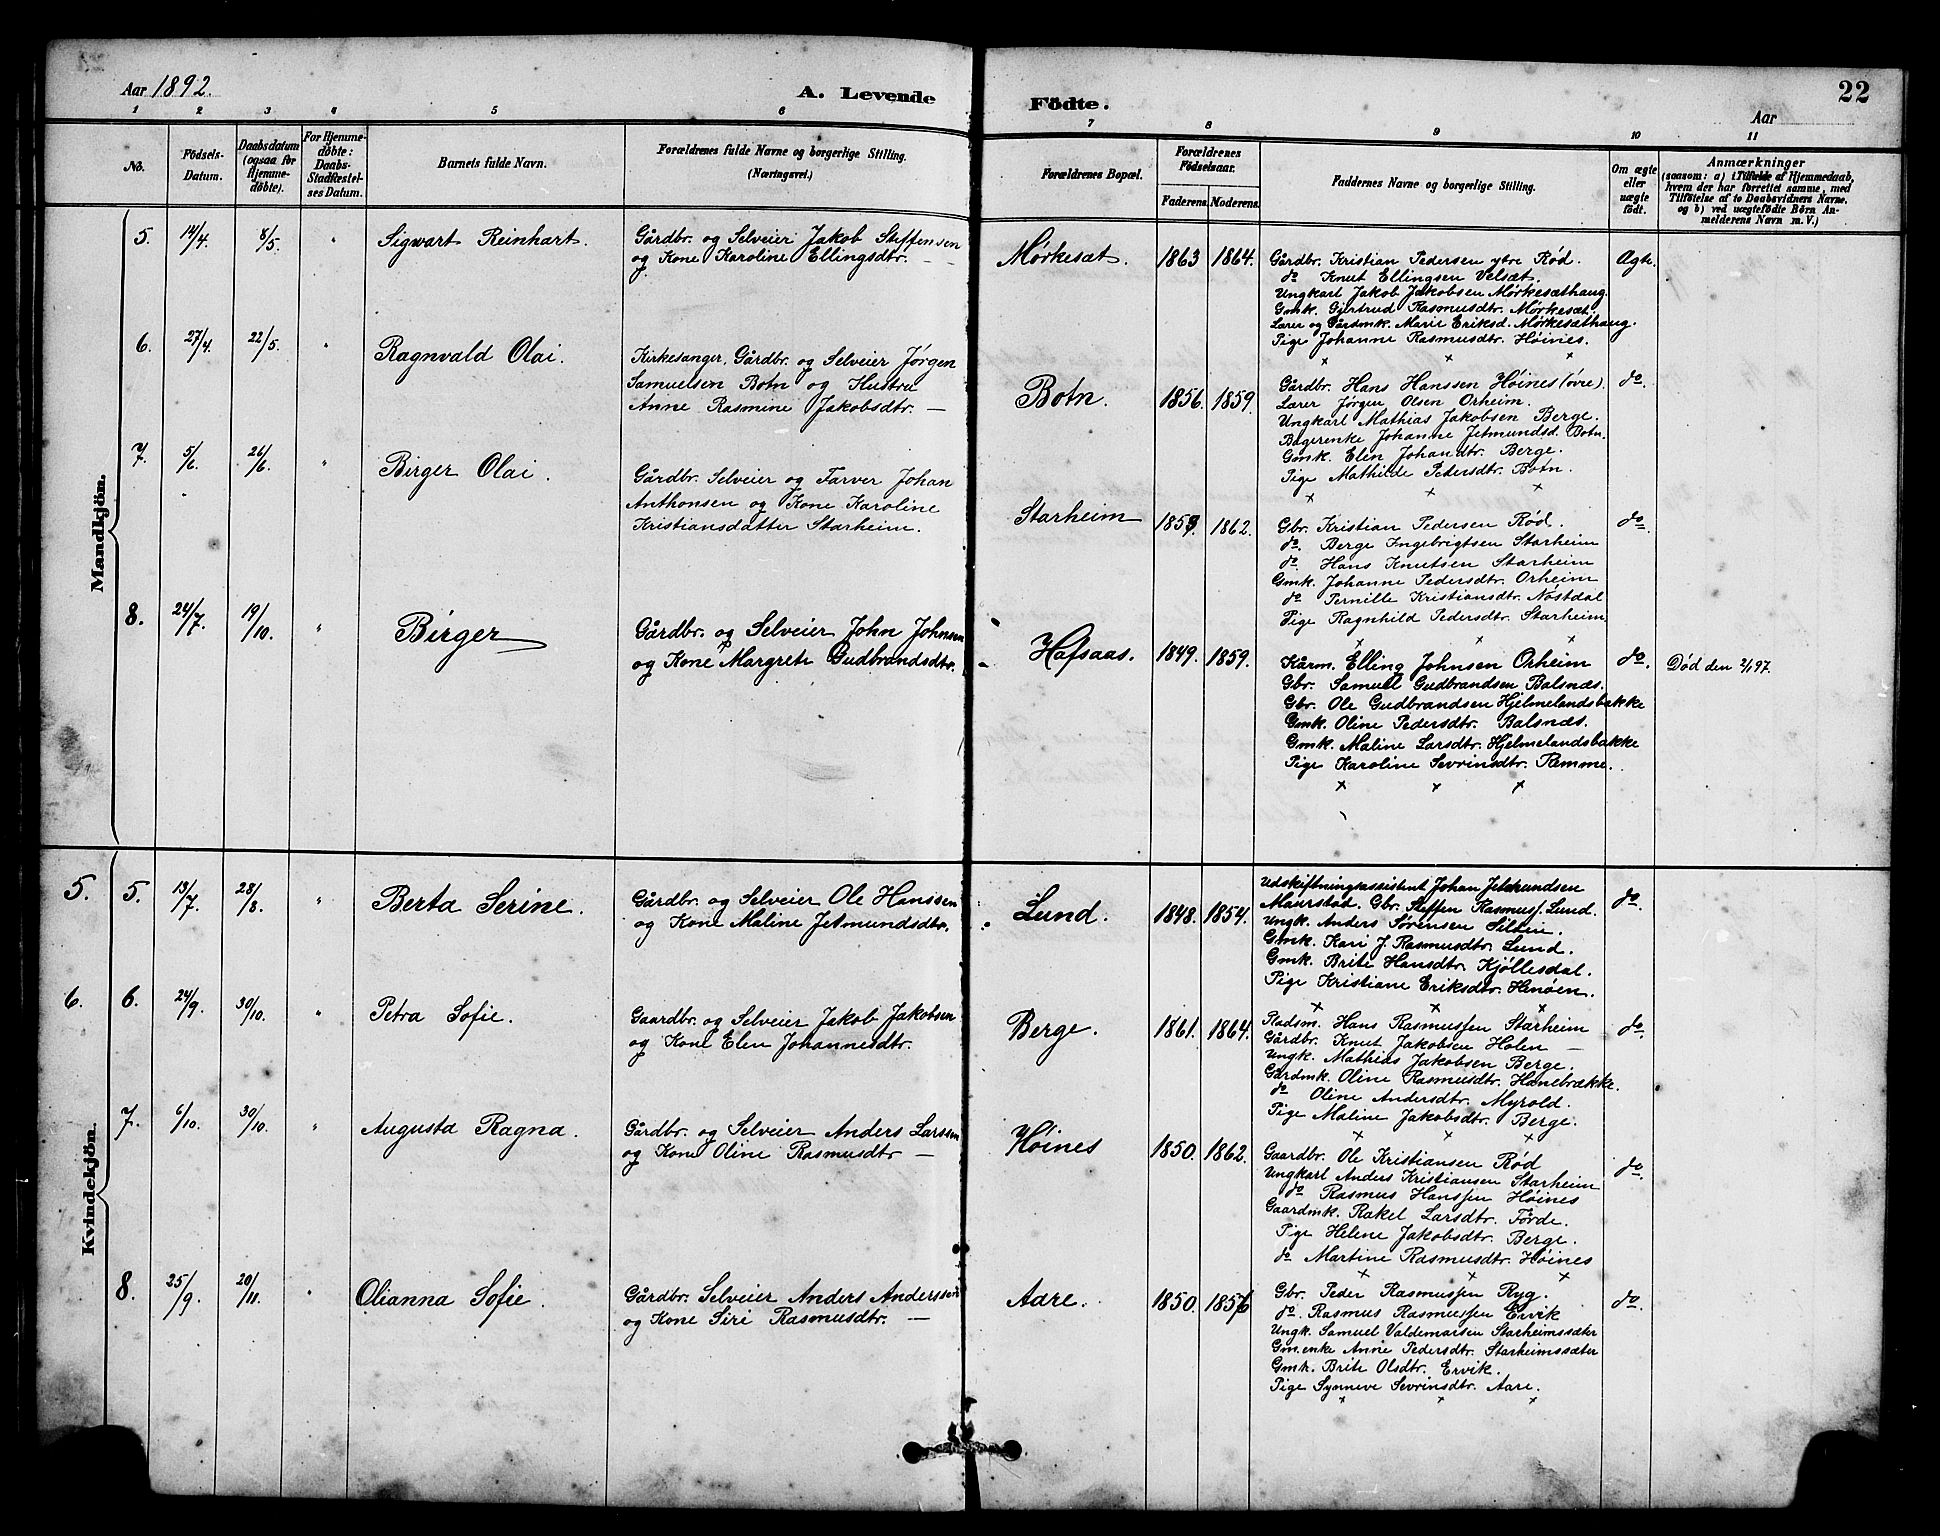 Aar 1892.
A. Levende
Födte.
22
Aar
1 2 3 4 5 6 7 8 9 10 11
No.
Födsels-
Datum.
Daabsdatum
(ogsaa for
Hjemme-
döbte).
For Hjemme-
döbte:
Daabs-
Stadfæstel-
ses Datum.
Barnets fulde Navn.
Forældrenes fulde Navne og borgerlige Stilling.
(Næringsvei.)
Forældrenes Bopæl.
Forældrenes
Födselsaar.
Faderens. Moderens.
Faddernes Navne og borgerlige Stilling.
Om ægte
eller
uægte
födt.
Anmærkninger
(saasom: a) i Tilfælde af Hjemmedaab,
hvem der har forrettet samme, med
Tilföielse af to Daabsvidners Navne,
og b) ved uægtefödte Börn An-
melderens Navn m. V.)
Mandkjön.
5. 14/4. 8/5. " Sigwart Reinhart.
Gårdbr. og Selveier Jakob Steffensen
og Kone Karoline Ellingsdtr. - -
Mørkesæt. 1863 1864.
Gårdbr. Kristian Pedersen ytre Rød.
do Knut Ellingsen Velsæt
Ungkarl Jakob Jakobsen Mørkesæthaug.
Gmk. Gjertrud Rasmusdtr. Mørkesæt.
Lærer og Gårdmk. Marie Eriksd. Mørkesæthaug.
Pige Johanne Rasmusdtr. Høines.
x x x
Ægte.
6. 27/4. 22/5. " Ragnvald Olai.
Kirkesanger, Gårdbr. og Selveier Jørgen
Samuelsen Botn og Hustru
Anne Rasmine Jakobsdtr. —
Botn. 1856. 1859.
Gårdbr. Hans Hanssen Høines (øvre).
Lærer Jørgen Olsen Orheim.
Ungkarl Mathias Jakobsen Berge.
Johanne Jetmundsd. Botn.
Gmk. Elen Johandtr. Berge.
Pige Mathilde Pedersdtr. Botn.
x x x
do.
7. 5/6. 26/6. " Birger Olai.
Gårdbr. Selveier og Farver Johan
Anthonsen og Kone Karoline
Kristiansdatter Starheim.
Starheim 1859. 1862.
Gbr. Kristian Pedersen Rød.
do. Berge Ingebrigtsen Starheim
do. Hans Knutsen Starheim
Gmk. Johanne Pedersdtr. Orheim
do Pernille Kristiansdtr. Nøstdal
Pige Ragnhild Pedersdtr. Starheim
x x x
do
8. 24/7. 19/10. " Birger
Gårdbr. og Selveier John Johnsen
og Kone Margrete Gudbrandsdtr.
Hafsaas. 1849. 1859.
Kårm. Elling Johnsen Orheim
Gbr. Samuel Gudbrandsen Balsnæs.
Gbr. Ole Gudbrandsen Hjelmelandsbakke
Gmk. Oline Pedersdtr. Balsnæs.
Gmk. Maline Larsdtr. Hjelmelandsbakke
Pige Karoline Sevrinsdtr. Remme.
x x x
do.
Død den 2/1 97.
Kvindekjön.
5. 5. 13/7. 28/8. " Berta Serine.
Gårdbr. og Selveier Ole Hanssen
og Kone Maline Jetmundsdtr.
Lund. 1848. 1854.
Udskiftningsassistent Johan Jetmundsen
Maurstad. Gbr. Steffen Rasmuss. Lund.
Ungk. Anders Sørensen Silden.
Gmk. Kari J. Rasmusdtr. Lund.
Gmk. Brite Hansdtr. Kjøllesdal.
Pige Kristiane Eriksdtr. Henøen.
x x x
do.
6. 6. 24/9. 30/10. " Petra Sofie.
Gaardbr. og Selveier Jakob Jakobsen
og Kone Elen Johannesdtr.
Berge. 1861. 1864.
Pladsm. Hans Rasmussen Starheim
Gårdbr. Knut Jakobsen Holen —
Ungk. Mathias Jakobsen Berge.
Gårdmk. Oline Rasmusdtr. Hanebrække.
do Oline Andersdtr. Myrold.
Pige Maline Jakobsdtr. Berge.
x x x
do.
7. 6/10. 30/10. " Augusta Ragna.
Gårdbr. og Selveier Anders Larssen
og Kone Oline Rasmusdtr —
Høines 1850. 1862.
Gaardbr. Ole Kristiansen Rød
Ungkarl Anders Kristiansen Starheim
do Rasmus Hanssen Høines
Gaardmk. Rakel Larsdtr. Førde.
Pige Helene Jakobsdtr. Berge.
do Martine Rasmusdtr. Høines
x x x
do.
8. 25/9. 20/11. " Olianna Sofie.
Gårdbr. Selveier Anders Anderssen
og Kone Siri Rasmusdtr. —
Aare. 1850. 1856
Gbr. Peder Rasmussen Ryg.
do. Rasmus Rasmussen Ervik
Ungk. Samuel Valdemarsen Starheimssæter
Gm.enke Anne Pedersdtr. Starheimssæter
Gmk. Brite Olsdtr. Ervik.
Pige Synneve Sevrinsdtr. Aare.
x x x
do.